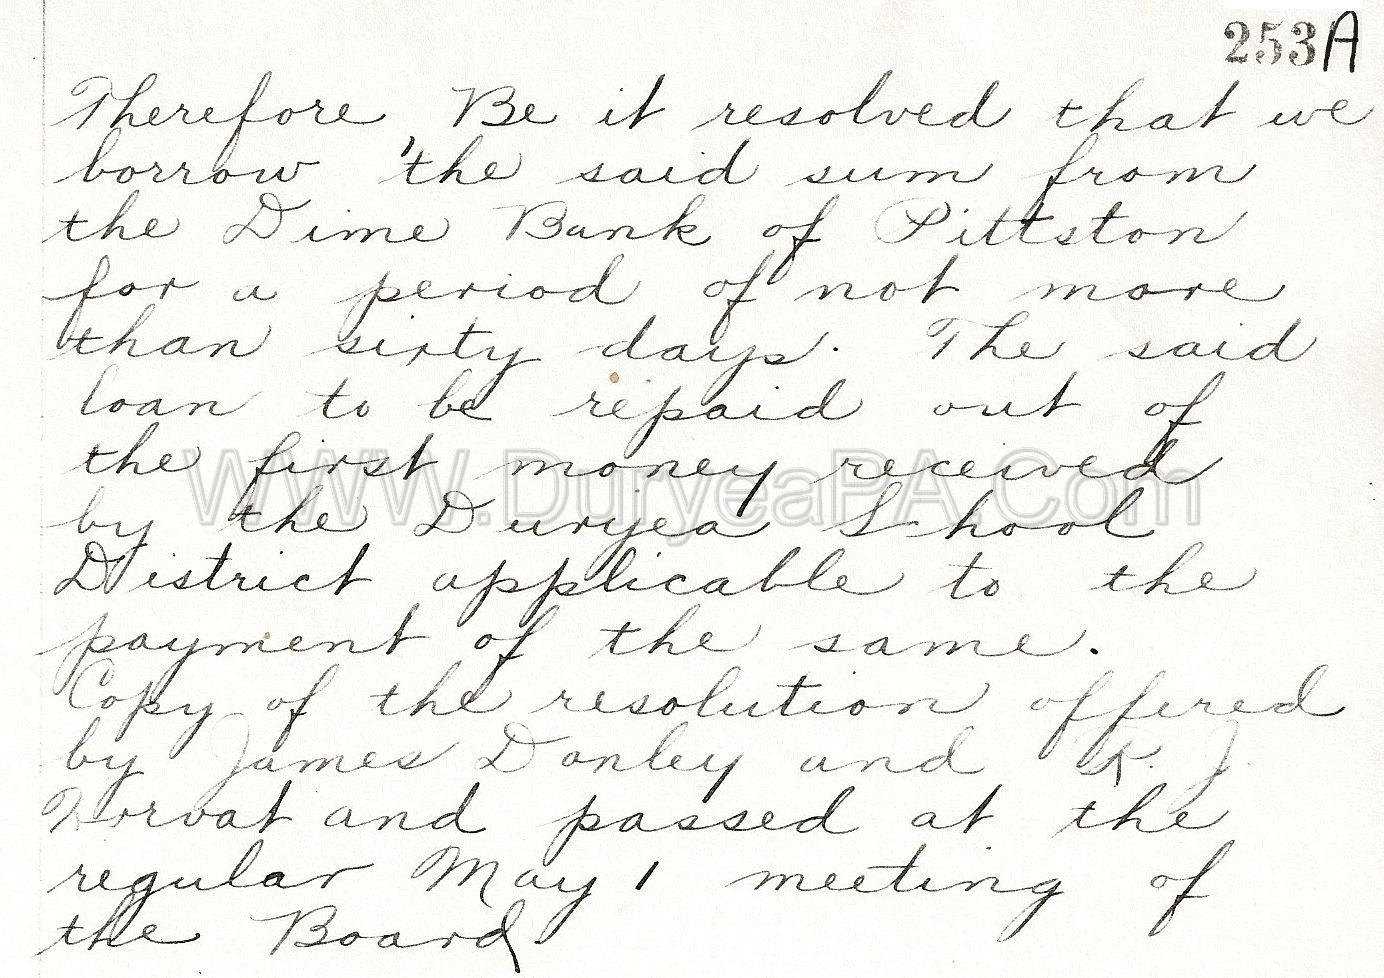 253A
Therefore, Be it resolved that we
borrow the said sum from
the Dime Bank of Pittston
for a period of not more
than sixty days. The said
loan to be repaid out of
the first money received
WWW.DuryeaPA.Com
by the Duryea School
District applicable to the
payment of the same.
Copy of the resolution offered
by James Donley and J.
and passed at the
regular May 1 meeting of
the Board